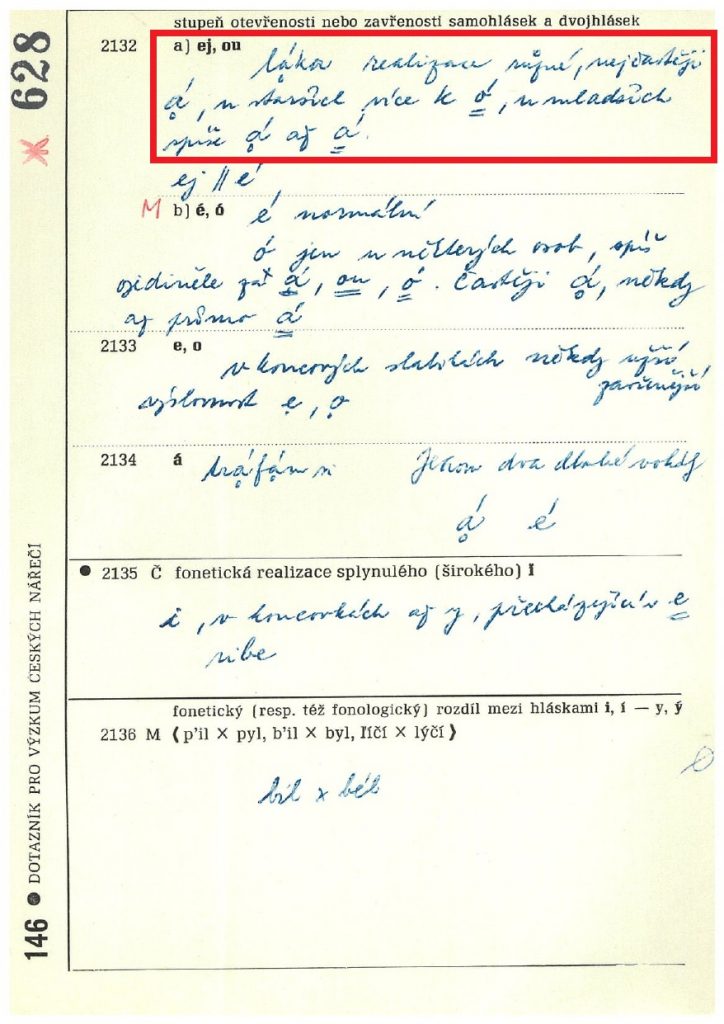 stupeň otevřenosti nebo zavřenosti samohlásek a dvojhlásek
2132 a) ej, ou
láka realizace různé, nejčastěji
ą́, u starších více k ó, u mladších
spíše ą́ až á.
ej || é
M b) é, ó é normální
ó jen u některých osob, spíš
ojediněle zař á, ou, ó. Častěji ą́, někdy
až přímo á
2133 e, o
v koncových slabikách někdy užší
zavřenější
výslovnost ẹ, ọ
2134 á
Jenom dva dlouhé vokály
ą́ é
2135 Č fonetická realizace splynulého (širokého) I
i, v koncovkách až y, přecházející v e
ribe
fonetický (resp. též fonologický) rozdíl mezi hláskami i, í — y, ý
2136 M (p'il X pyl, b'il X byl, líčí X lýčí)
bil x bél
146 ● DOTAZNÍK PRO VÝZKUM ČESKÝCH NÁŘEČÍ
628